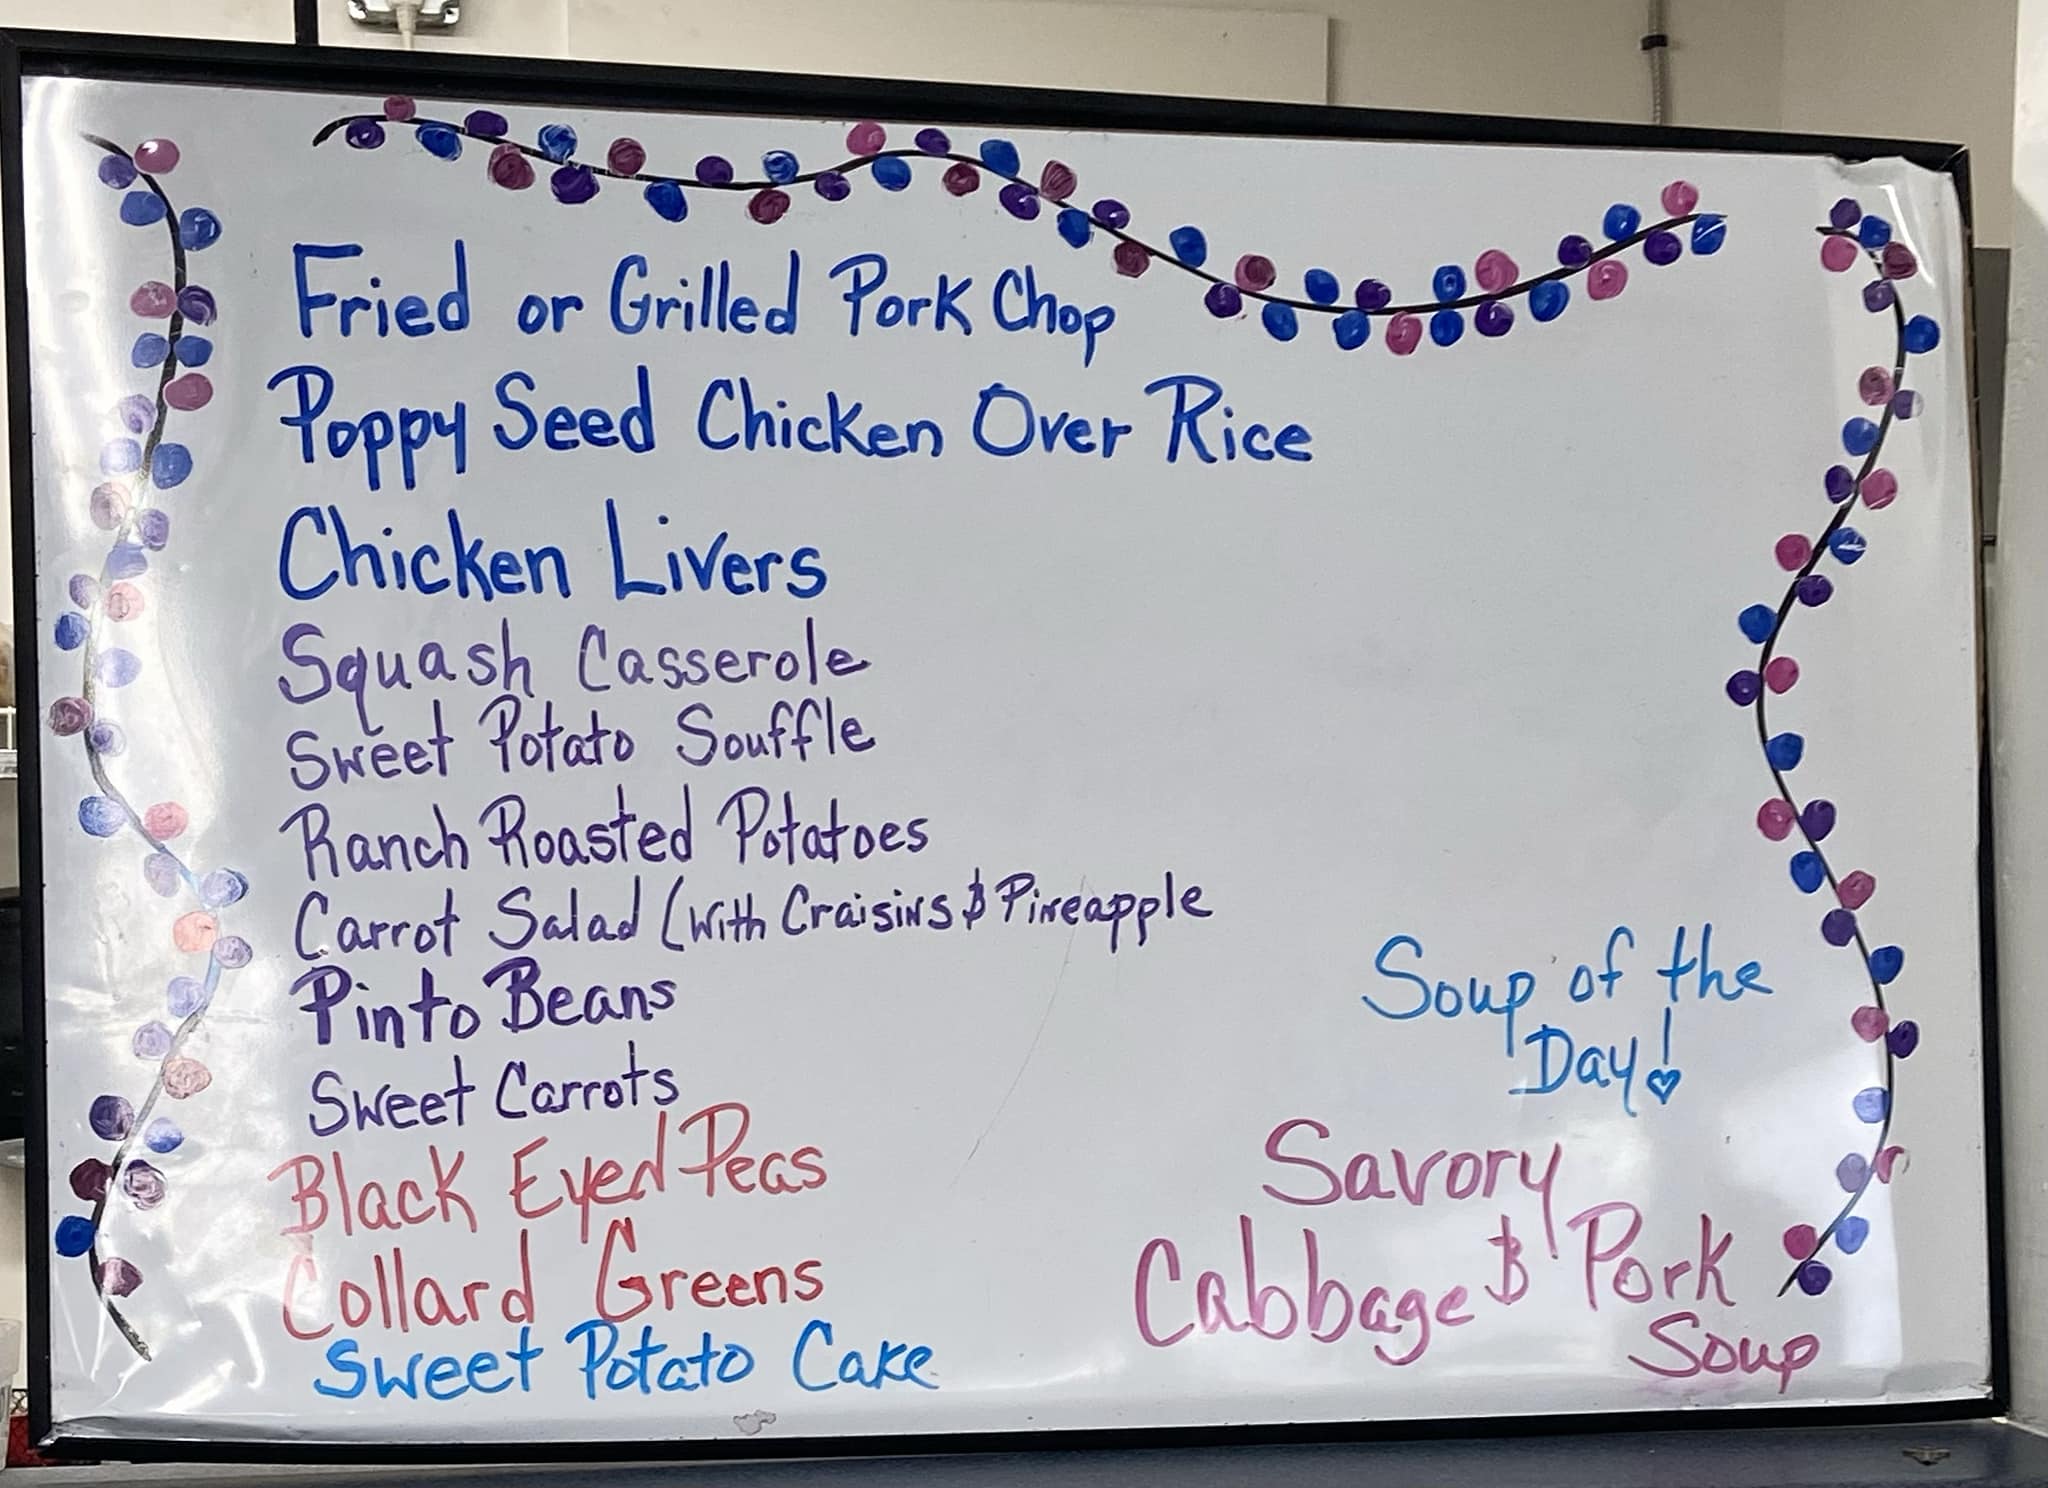 Fried or Grilled Pork Chop
Poppy Seed Chicken Over Rice
Chicken Livers
Squash Casserole
Sweet Potato Souffle
Ranch Roasted Potatoes
Carrot Salad (with Craisins & Pineapple
Pinto Beans
Sweet Carrots
Black Eyed Peas
Collard Greens
Sweet Potato Cake
Soup of the
Day!
Savory
Cabbage & Pork
Soup